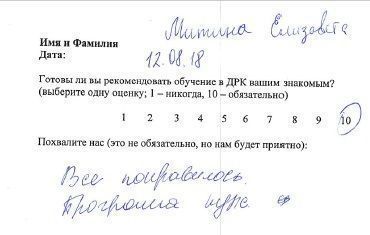 Митина Елизавета
Имя и Фамилия
Дата: 12.08.18
Готовы ли вы рекомендовать обучение в ДРК вашим знакомым?
(выберите одну оценку; 1 – никогда, 10 – обязательно)
1 2 3 4 5 6 7 8 9 10
Похвалите нас (это не обязательно, но нам будет приятно):
Все понравилось.
Программа